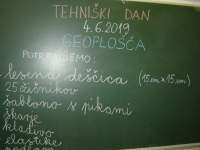 TEHNIŠKI DAN
4.6.2019
GEOPLOŠČA
POTREBUJEMO:
lesena deščica (15cm x 15cm)
25 žičnikov
šablono s pikami
škarje
kladivo
elastike
podlaga